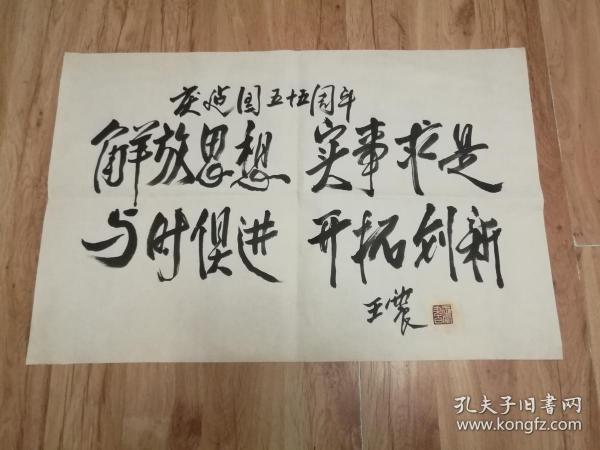 庆建国五十五周年
解放思想 实事求是
与时俱进 开拓创新
王震
孔夫子旧书网
www.kongfz.com